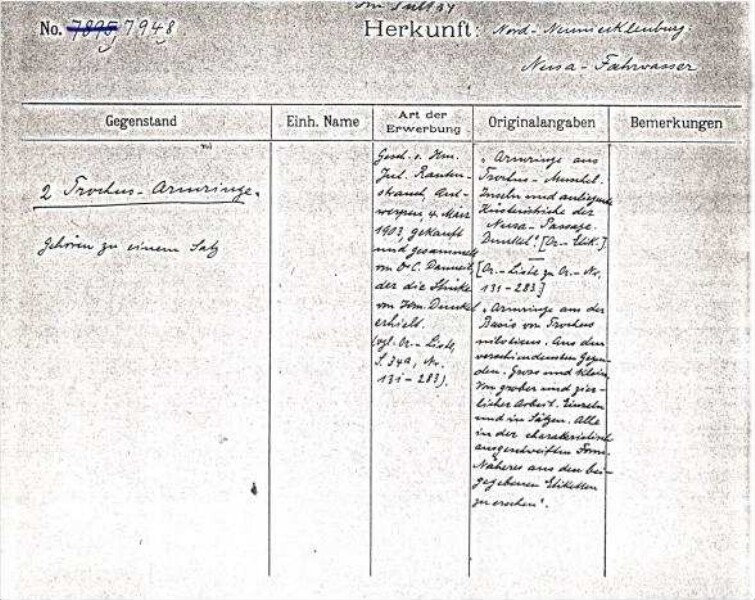 No. 7895, 7948
Herkunft: Nord-Neumecklenburg.
Nusa-Fahrwasser
Gegenstand
Einh. Name
Art der
Erwerbung
Originalangaben
Bemerkungen
2 Trochus-Armringe.
gehören zu einem Satz
Gesch. v. Hrn.
Jul. Rauten-
strauch, Ant-
werpen, 4. März
1903, gekauft
und gesammelt
von Dr C. Danneil,
der die Stücke
von Hrn. Dunkel
erhielt.
(vgl. Or.-Liste,
S. 34a, No.
131-283).
„Armringe aus
Trochus-Muschel.
Inseln und anliegende
Küstenstriche der
Nusa-Passage.
Dunkel". [Or.-Etik.].
[Or.-Liste zu Or.-No.
131-283]
„Armringe aus der
Basis von Trochus
niloticus. Aus den
verschiedensten Gegen-
den. Gross und klein,
von grober und zier-
licher Arbeit. Einzeln
und in Sätzen. Alle
in der charakteristisch
ausgeschweiften Form.
Näheres aus den bei-
gegebenen Etiketten
zu ersehen".